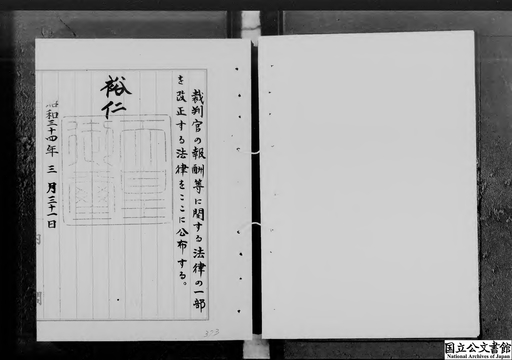 裁判官の報酬等に関する法律の一部
を改正する法律をここに公布する。
裕仁
昭和三十四年三月三十一日
373
国立公文書館
National Archives of Japan